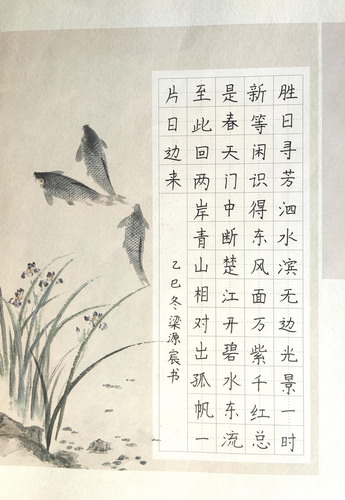 胜日寻芳泗水滨无边光景一时
新等闲识得东风面万紫千红总
是春天门中断楚江开碧水东流
至此回两岸青山相对出孤帆一
片日边来
乙巳冬梁源宸书